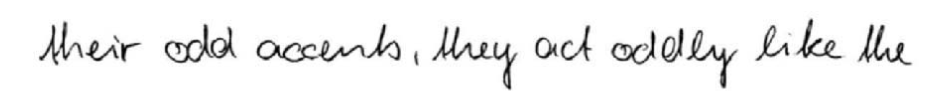 their odd accents, they act oddly like the